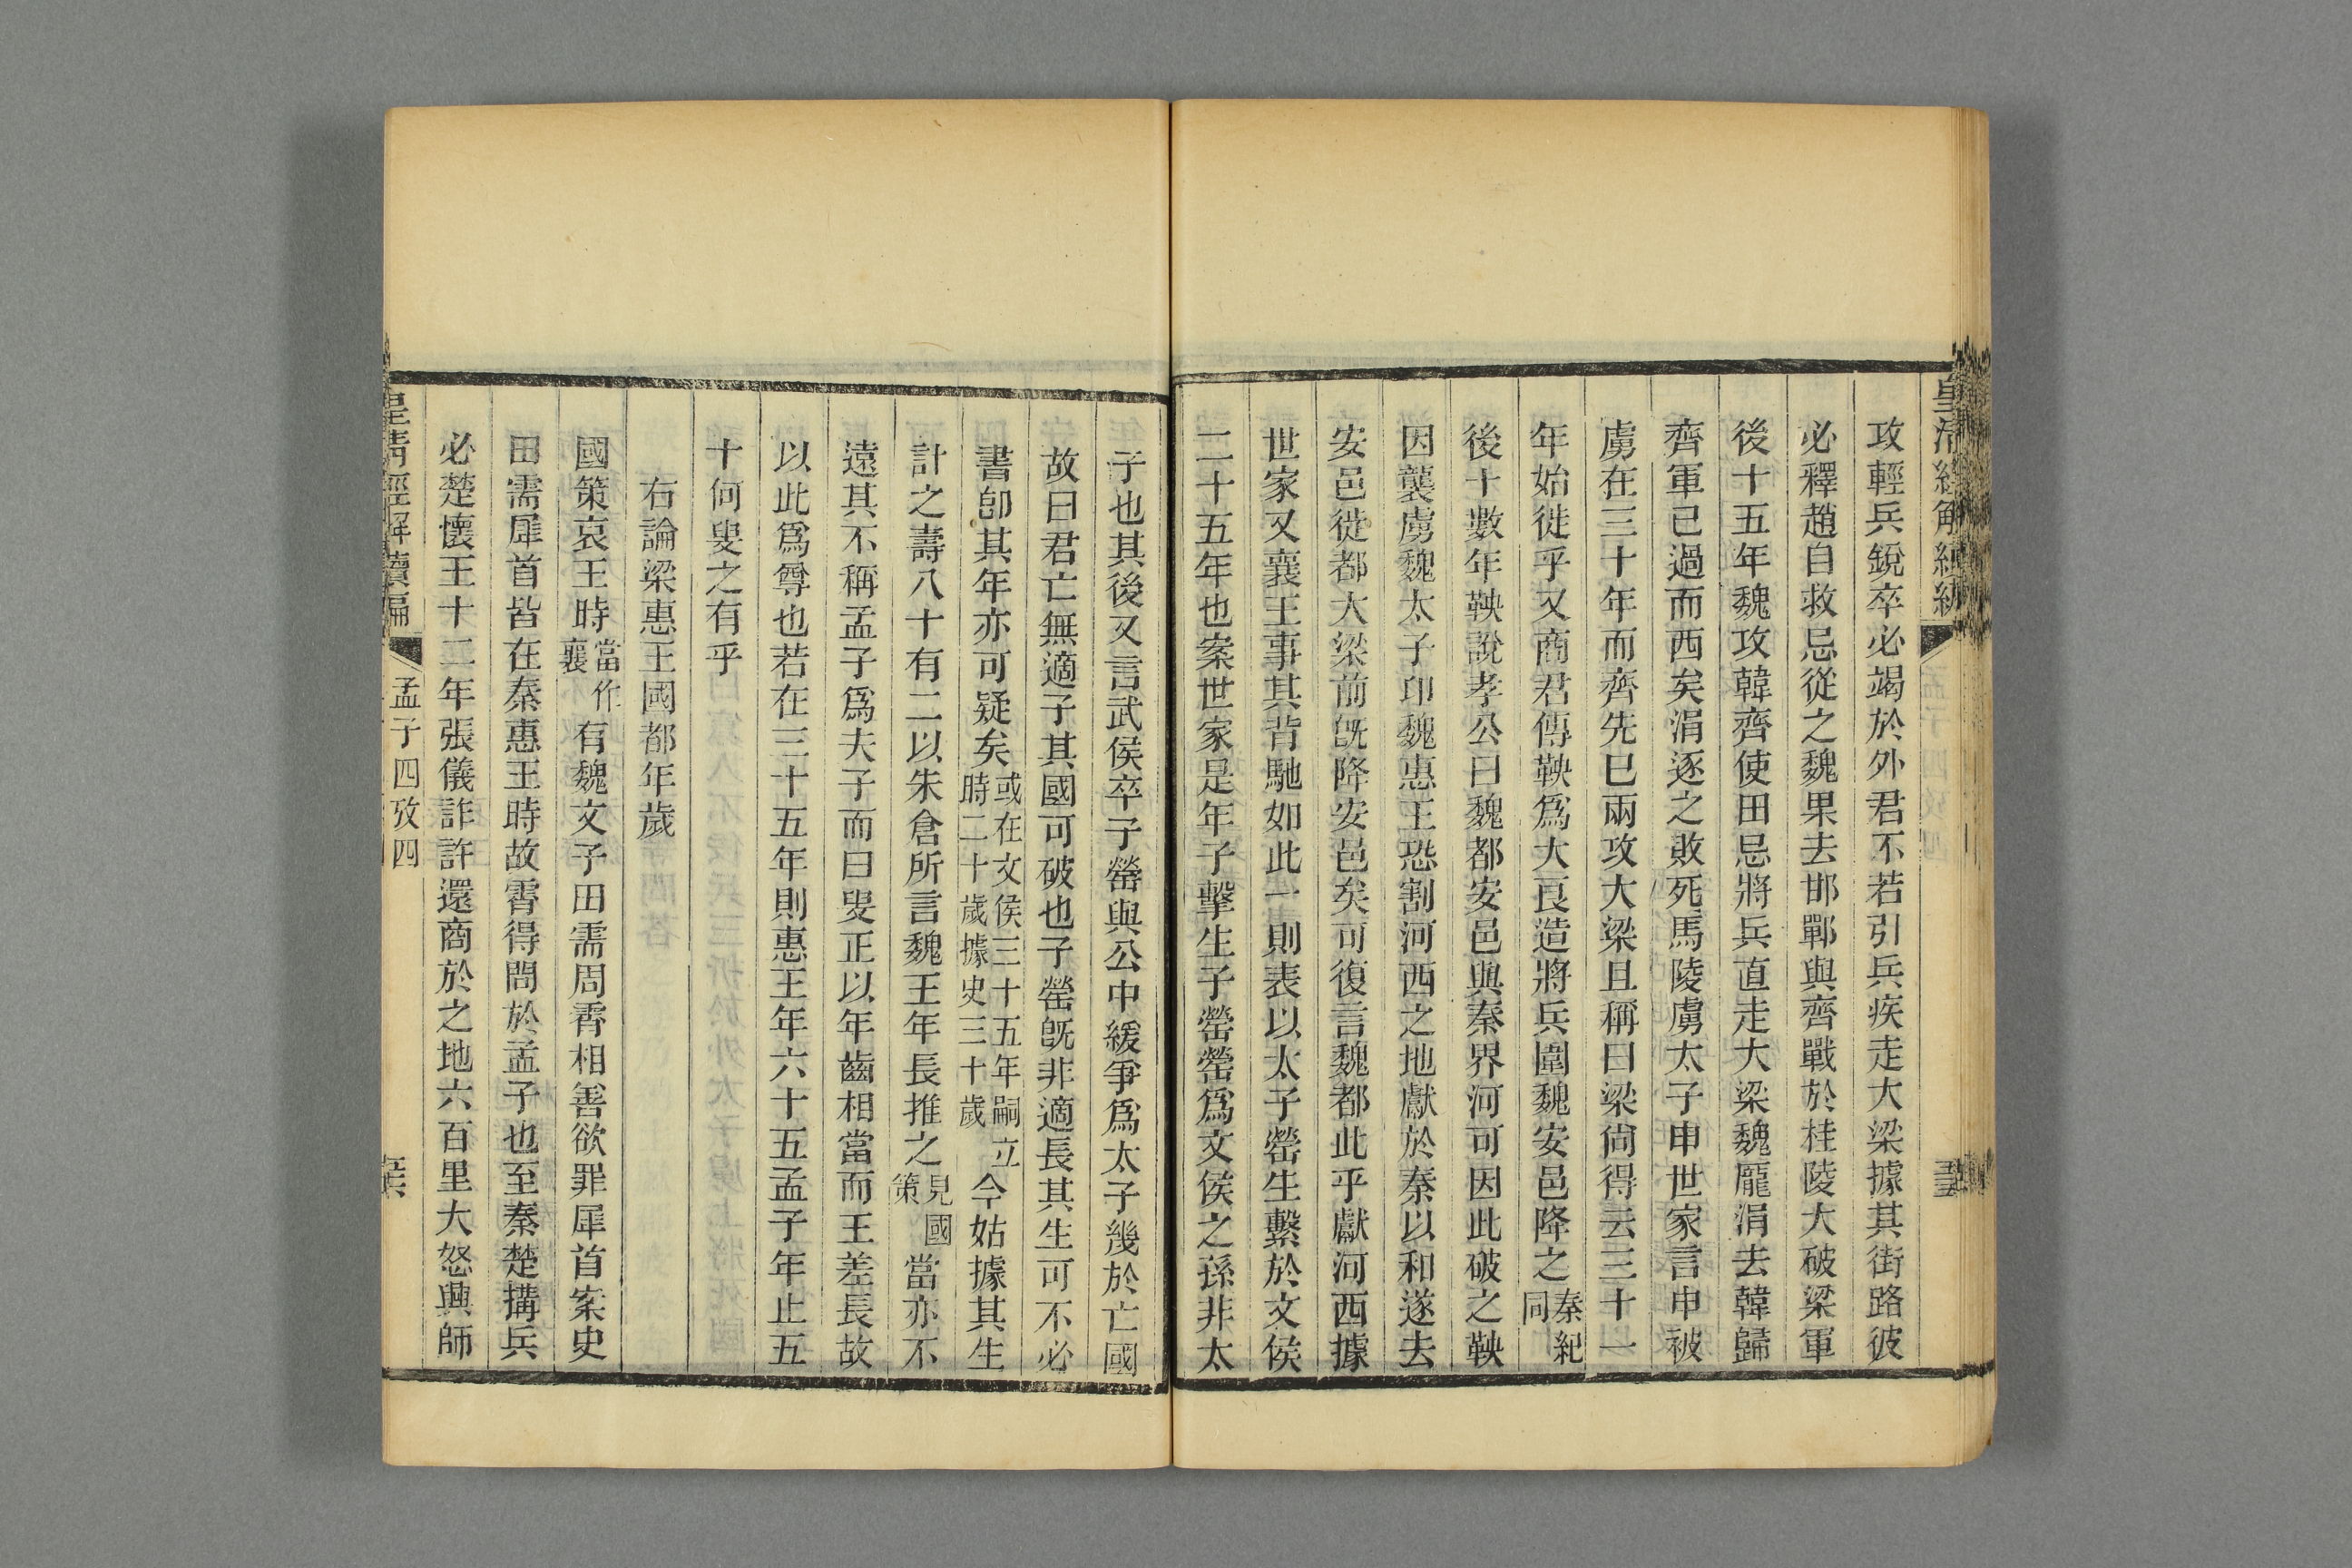 攻輕兵銳卒必竭於外君不若引兵疾走大梁據其街路彼
必釋趙自救忌從之魏果去邯鄲與齊戰於桂陵大破梁軍
後十五年魏攻韓齊使田忌將兵直走大梁魏龐涓去韓歸
齊軍已過而西矣涓逐之敗死馬陵虜太子申世家言申被
虜在三十年而齊先已兩攻大梁且稱曰梁尙得云三十一
年始徙乎又商君傳鞅爲大良造將兵圍魏安邑降之秦紀同
後十數年鞅說孝公曰魏都安邑與秦界河可因此破之鞅
因襲虜魏太子卬魏惠王恐割河西之地獻於秦以和遂去
安邑徙都大梁前旣降安邑矣可復言魏都此乎獻河西據
世家又襄王事其背馳如此一則表以太子罃生繫於文侯
二十五年也案世家是年子擊生子罃罃爲文侯之孫非太
子也其後又言武侯卒子罃與公中緩爭爲太子幾於亡國
故曰君亡無適子其國可破也子罃旣非適長其生可不必
書卽其年亦可疑矣或在文侯三十五年嗣立時二十歲據史三十歲今姑據其生
計之壽八十有二以朱倉所言魏王年長推之見國策當亦不
遠其不稱孟子爲夫子而曰叟正以年齒相當而王差長故
以此爲尊也若在三十五年則惠王年六十五孟子年止五
十何叟之有乎
右論梁惠王國都年歲
國策哀王時當作襄有魏文子田需周霄相善欲罪犀首案史
田需犀首皆在秦惠王時故霄得問於孟子也至秦楚搆兵
必楚懷王十二年張儀詐許還商於之地六百里大怒興師
皇清經解續編
孟子四攷四